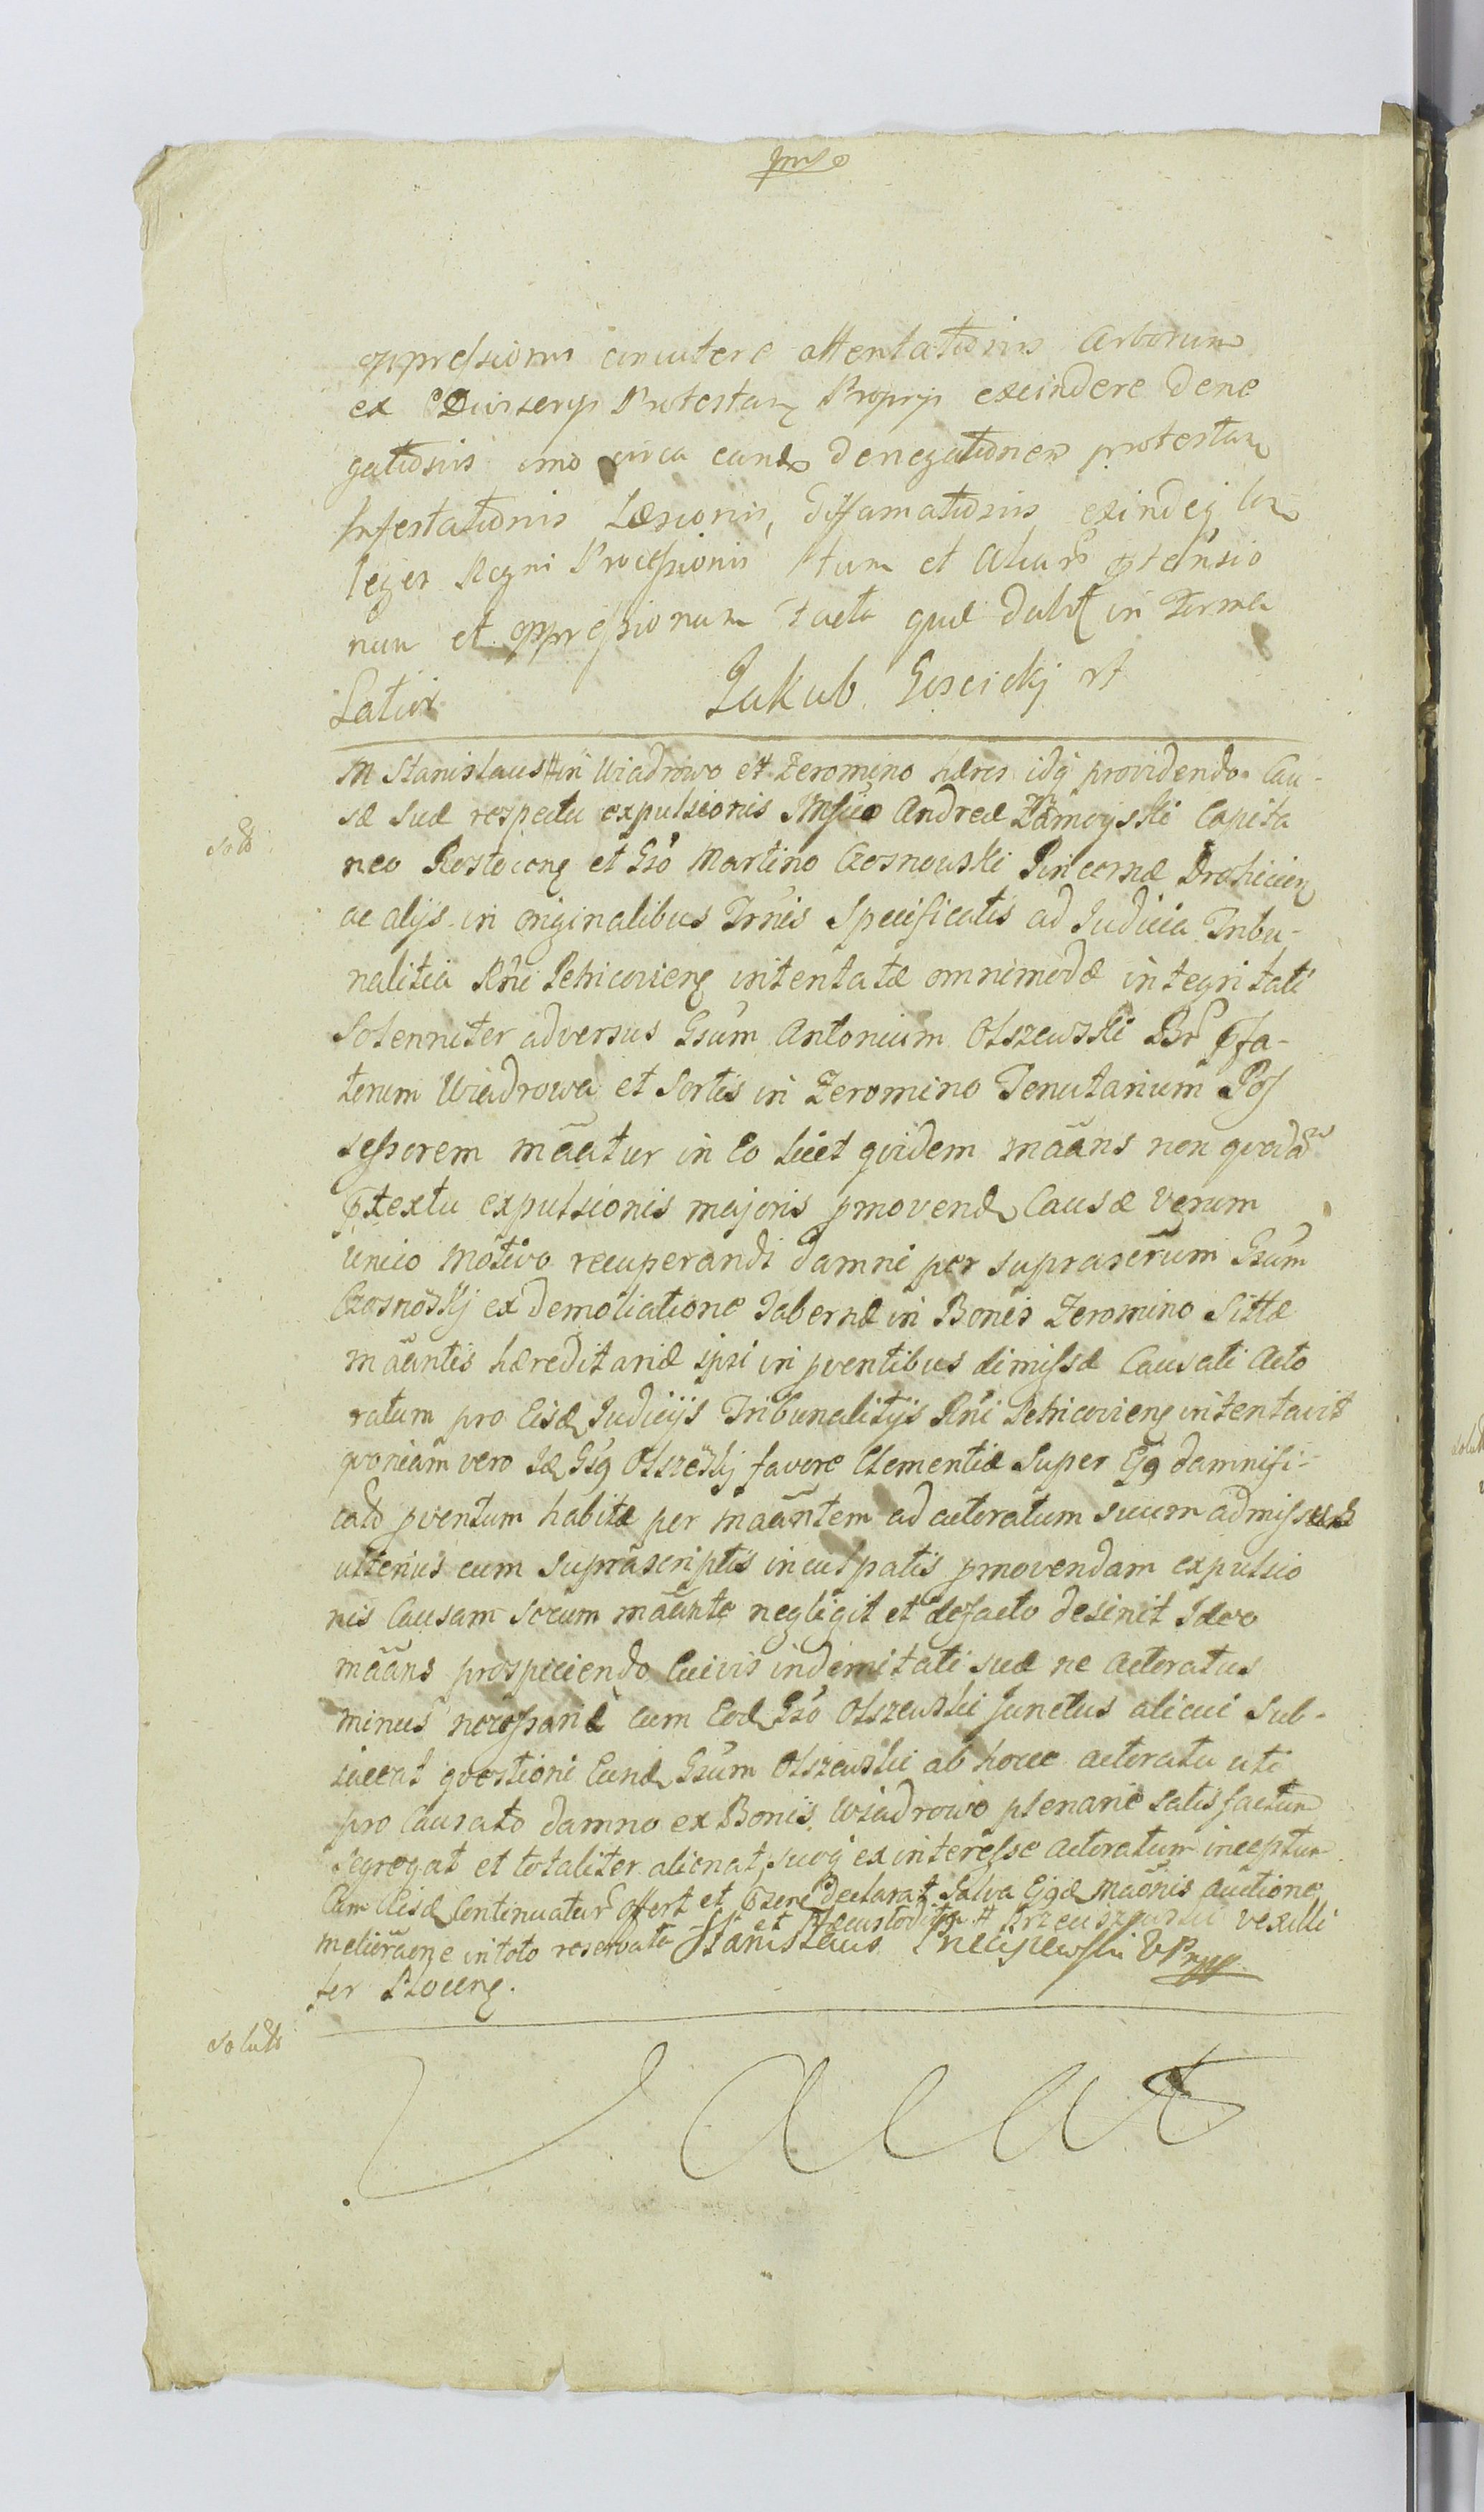 oppressionis attentationis Arborum
ex Protestan Proprys excindere dene
gationis imo circa eand denegationem protestan
Infestationis Læsionis, diffamationis exindeq
leges Regni Processionis tum et aliar prtensio
num et oppressionum facta quæ dabit in Terma
Latius Jakub Goscickj
M Stanislaus # in Wiadrowo et Zeromino hæres idq providendo Cau-
sæ suæ respectu expulsionis Andreæ Zamoyski Capita
soló
neo Rostocen et Gso Martino Czosnowski Pincernæ Drohicien
ac alijs in originalibus Trnis Specificatis ad Judicia Tribu-
nalitia Rni Petricovien intentatæ omnimodæ integritati
Solenniter adversus Gsum Antonium Olszewski prfa-
torum Wiadrowa et Sortis in Zeromino Tenutarium Pos
sessorem mãatur in Eo licet quidem mãans non
prtextu expulsionis majoris pmovend Causæ verum
unico motivo recuperandi damni per suprascrum Gsum
Czosnoskj ex demoliatione Tabernæ in Bonis Zeromino Sittæ
mãantis hæreditariæ ipsi in pventibus dimissæ Causati acto
ratum pro Eisd Judicijs Tribunalitijs Rni Petricovien intentavit
quoniam vero Id Gsq Olszeskj favore Clementiæ Super Ejq damnifi-
cato pventum habitæ per mãantem ad actoratum suum admissus
ulterius cum supra scriptis inculpatis pmovendam expulsio
nis Causam secum mãante negligit et defacto desinit Ideo
mãans prospiciendo Cuivis indemitati suæ ne actoratus
minus necessarie cum Eod Gso Olszewski junctus alicui Sub-
jaceat qvestioni Eund Gsum Olszewski ab hocce actoratu uti
pro Causato damno ex Bonis Wiadrowo plenarie satisfactum
segregat et totaliter alienat, suoq ex interesse actoratum inceptum
Cum Eisd Continuatur offert et prsene declarat Salva Ejqd mãonis auctione
et # Krzeciszewski vexilli
melioraone in toto reservata Stanislaus
fer Plocen.
soluto